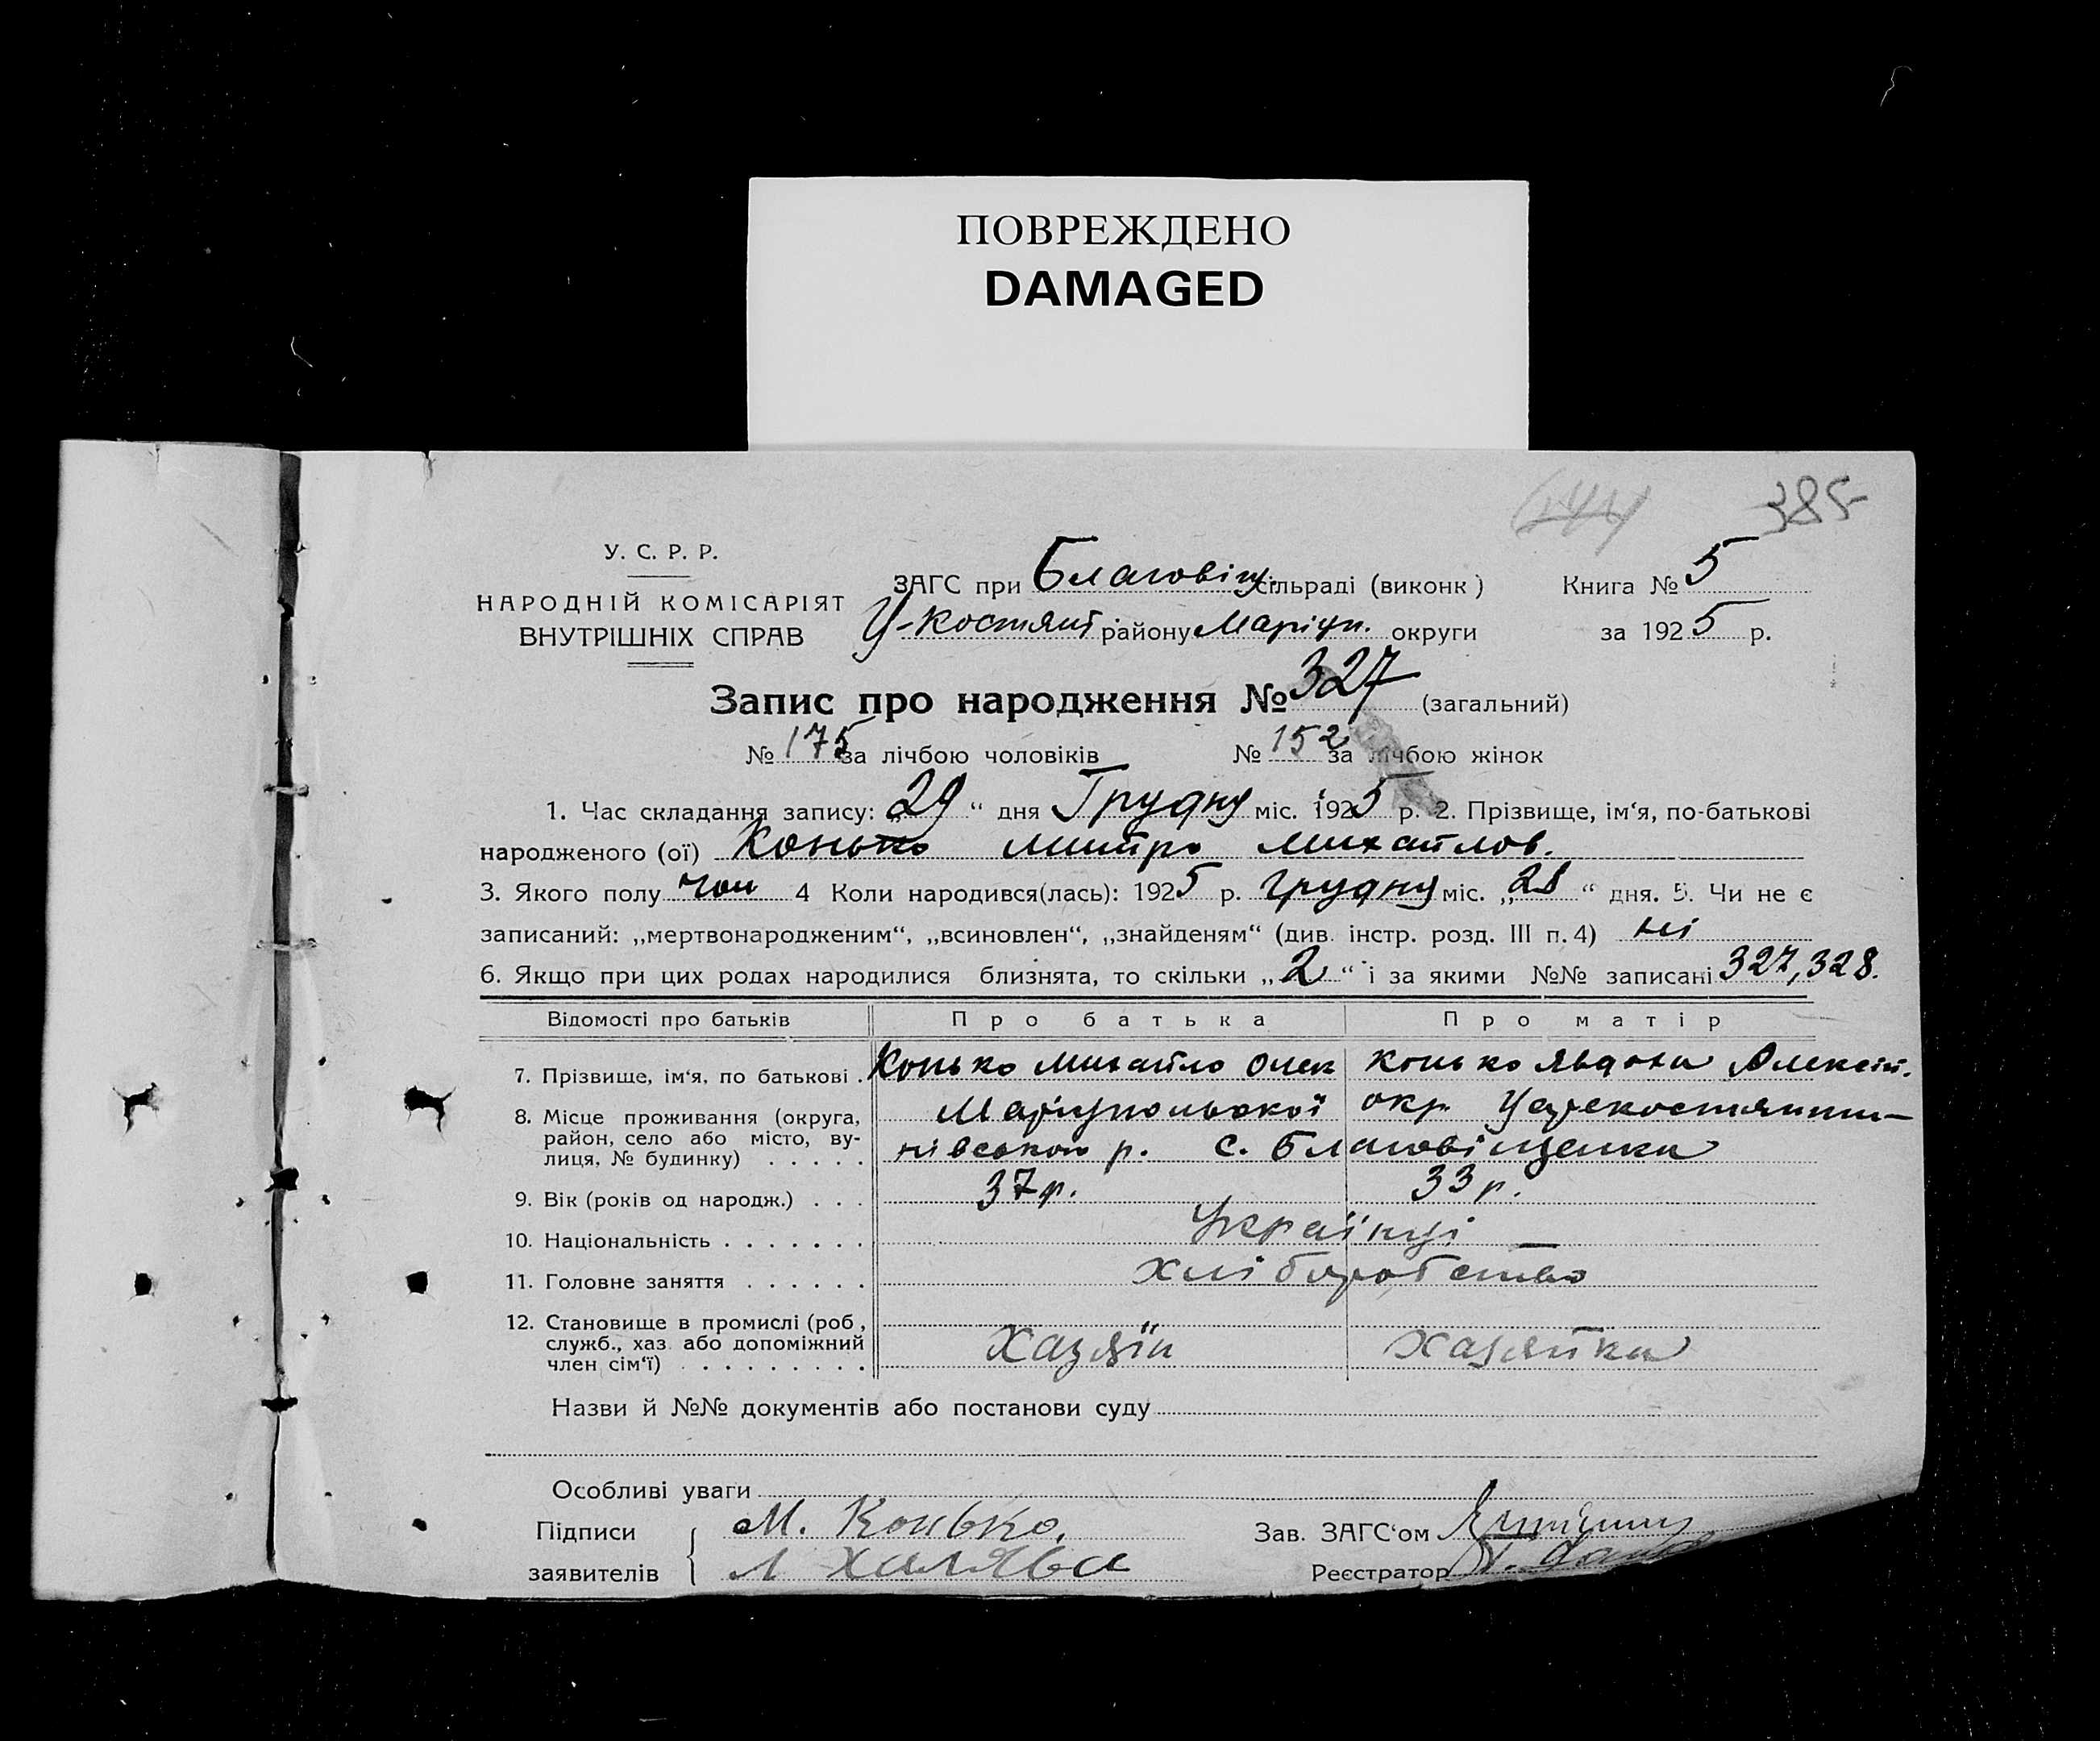 ПОВРЕЖДЕНО
DAMAGED
385
У. С. Р. Р.
НАРОДНІЙ КОМІСАРІЯТ
ВНУТРІШНІХ СПРАВ
ЗАГС при Благовіщ. сільраді (виконк) Книга № 5
У-Костянт. району Маріуп. округи за 1925 р.
Запис про народження № 327 (загальний)
№ 175 за лічбою чоловіків № 152 за лічбою жінок
1. Час складання запису: „29“ дня Грудну міс. 1925 р. 2. Прізвище, ім‘я, по-батькові
народженого (ої) Конько Митро Михайлов.
3. Якого полу чол 4 Коли народився(лась): 1925 р. грудну міс. „28“ дня. 5. Чи не є
записаний: „мертвонародженим“, „всиновлен“, „знайденям“ (див. інстр. розд. III п. 4) ні
6. Якщо при цих родах народилися близнята, то скільки „2“ і за якими №№ записані 327, 328.
Відомості про батьків Про батька Про матір
7. Прізвище, ім‘я, по батькові . Конько Михайло Олек Конько Явдоха Олексій.
8. Місце проживання (округа, Маріупольської окр.
район, село або місто, ву- нівського р. С. Благовіщенка
лиця, № будинку) . . . . .
9. Вік (років од народж.) . . . 37 р. 33 р.
10. Національність . . . . . . . Українці
11. Головне заняття . . . . . . хліборобство
12. Становище в промислі (роб.,
служб., хаз. або допоміжний Хазяїн Хазяйка
член сім‘ї) . . . . . . . . .
Назви й №№ документів або постанови суду
Особливі уваги
Підписи М. Конько. Зав. ЗАГС‘ом
заявителів Л Халява Реєстратор